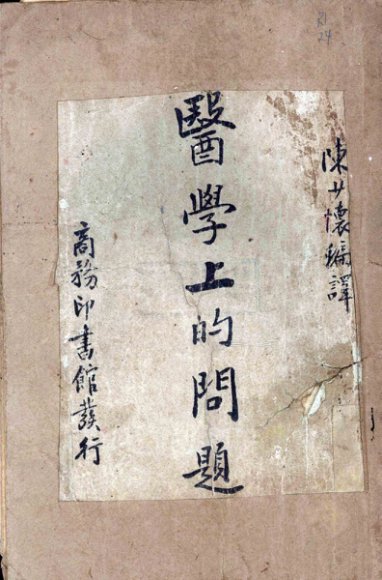 陳廿懷編譯
醫學上的問題
商務印書館發行